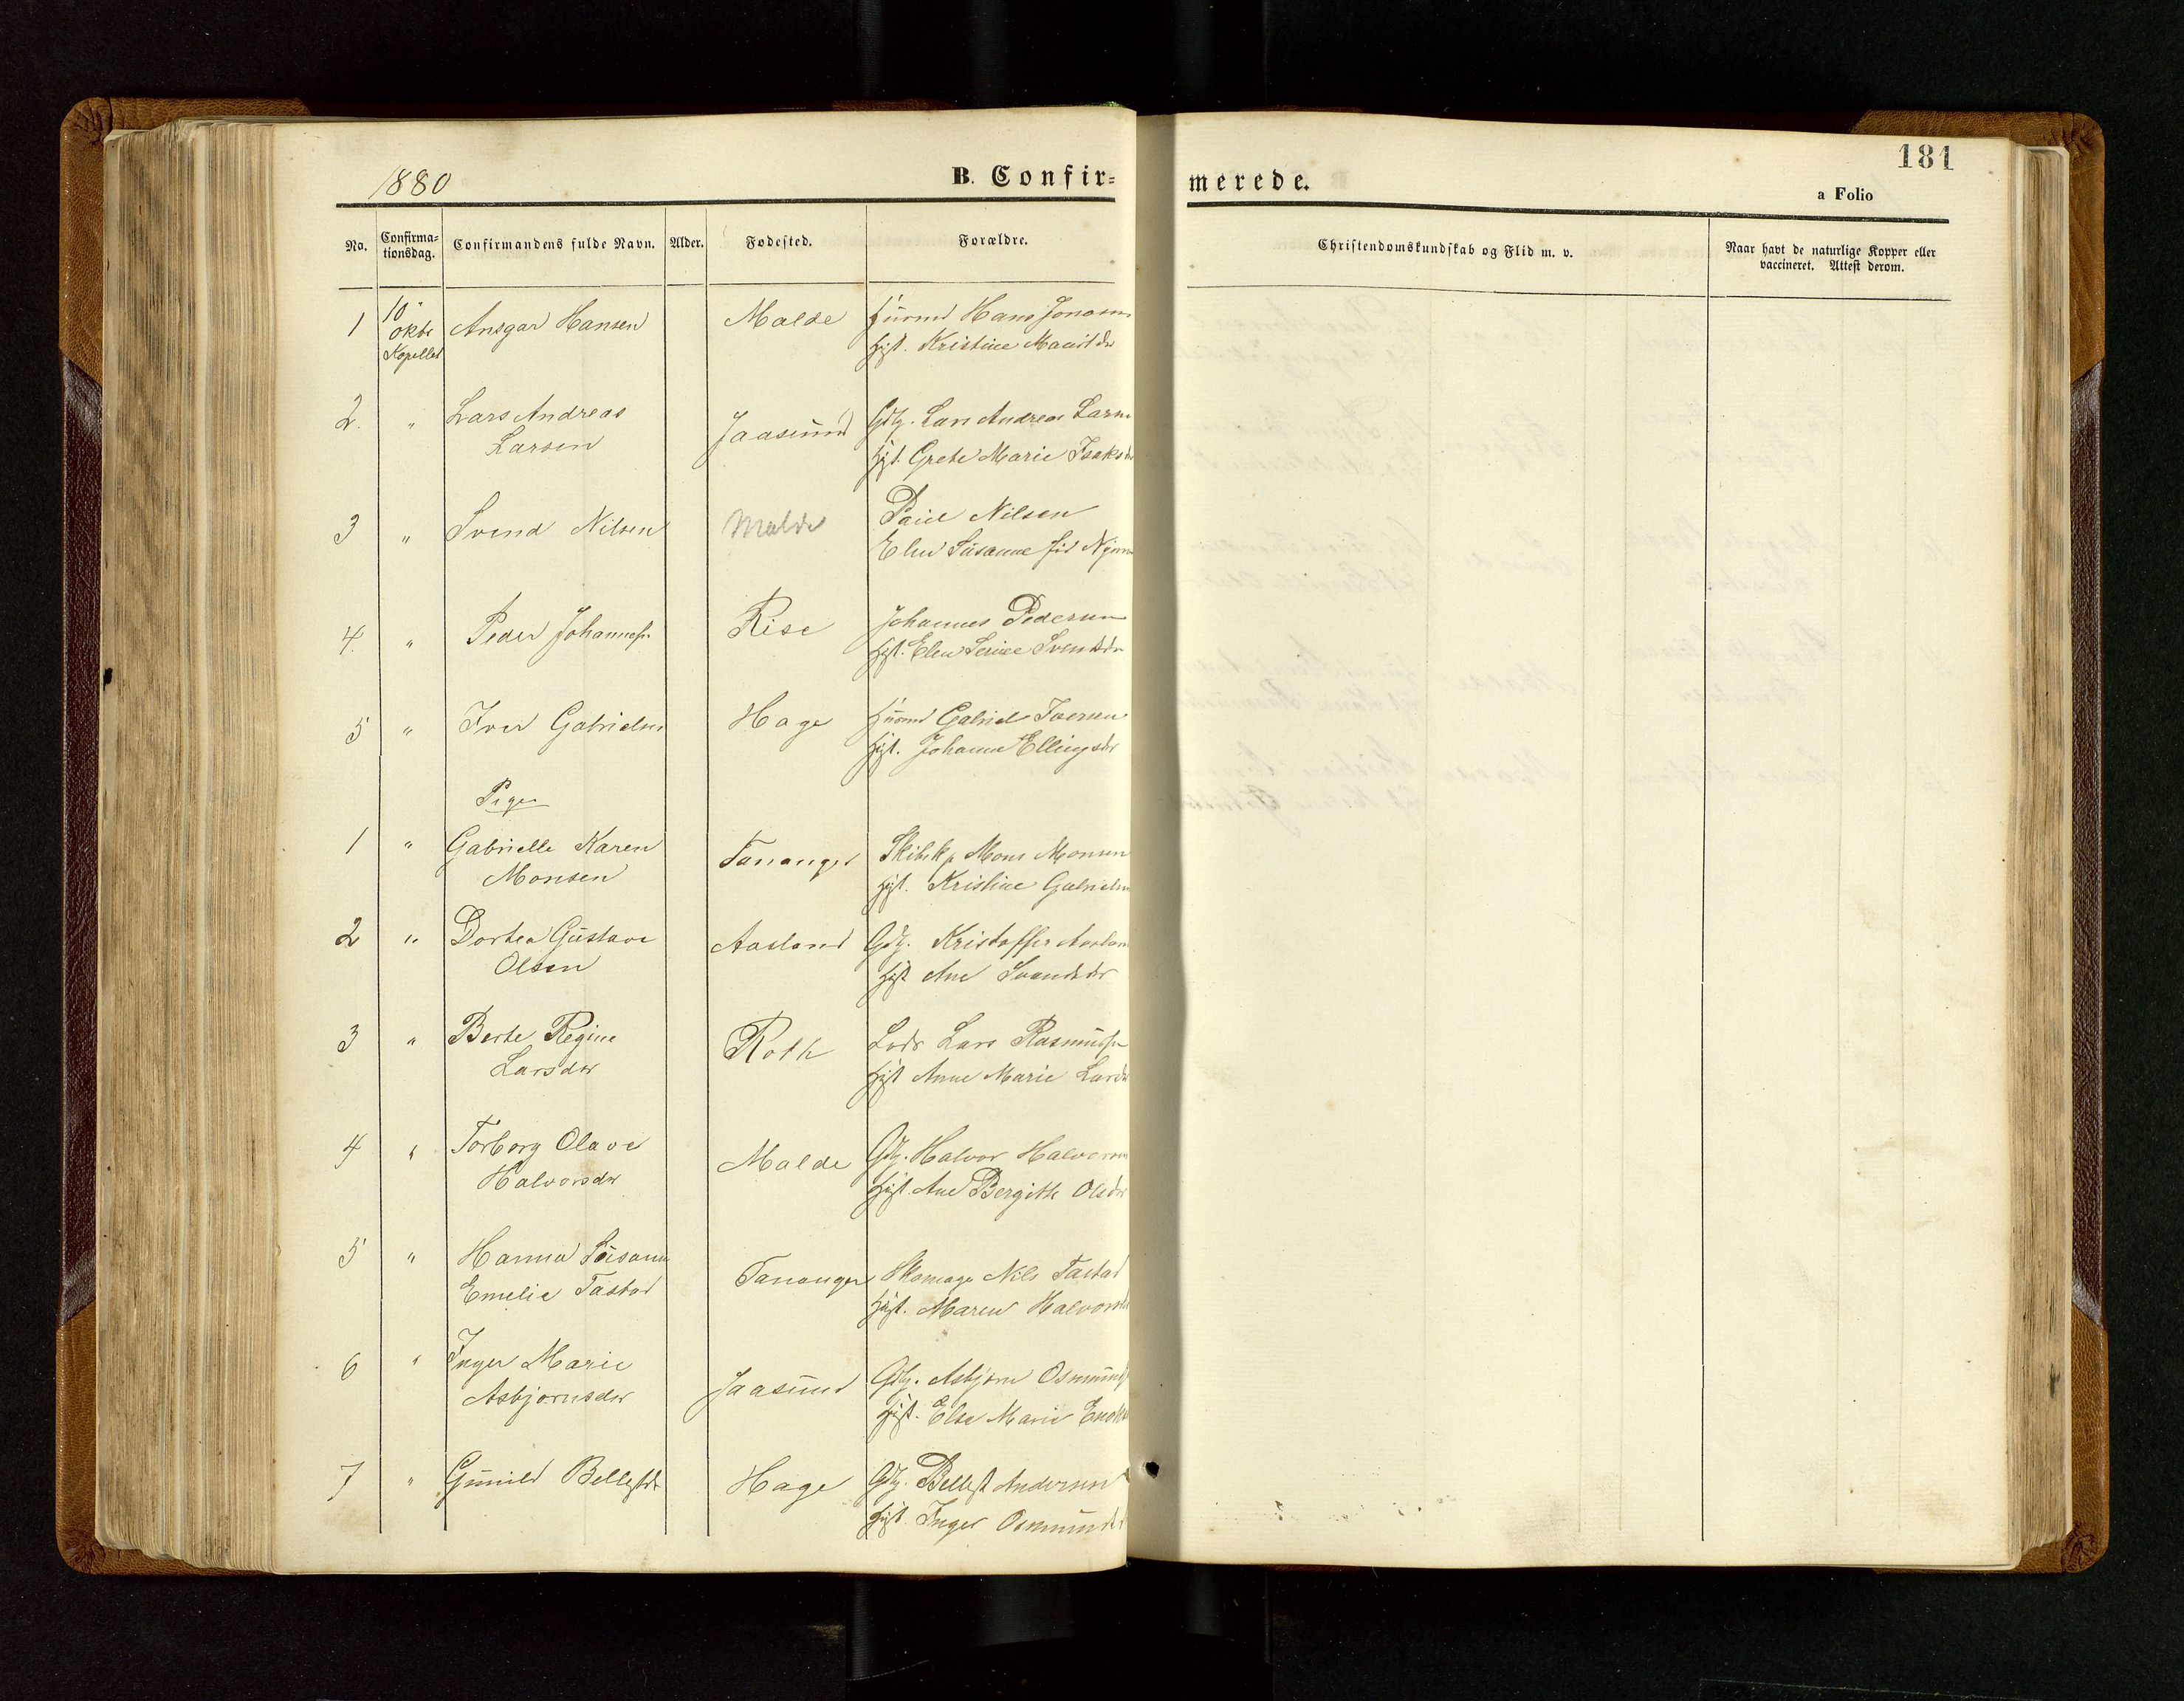 1880
B. Confir=
merede.
181
a Folio
No.
Confirma=
tionsdag.
Confirmandens fulde Navn.
Alder.
Fødested.
Forældre.
Christendomskundskab og Flid m. v.
Naar havt de naturlige Kopper eller
vaccineret. Attest derom.
1 10 Oktbr Kapellet Ansgar Hansen Malde Huusmd Hans Jonasen
Hust. Kristine
2. " Lars Andreas
Larsen Jaasund Gdbr. Lars Andreas Larsn
Hust. Grete Marie Isaksdr
3 " Svend Nilsen Malde Paul Nilsen
Elen Susanne
4. " Peder Johannesn Rise Johannes Pedersen
Hust. Elen Serine Svendsdr
5 " Iver Gabrielsen Hage Huusmd Gabriel Iversen
Hust. Johanne Ellingsdr
Piger
1 " Gabrielle Karen
Monsen Tananger Skibskp Mons Monsen
Hust. Kristine Gabrielsen
2 " Dortea Gustava
Olsen Aasland Gdbr. Kristoffer Aasland
Hust Ane Svendsdr
3 " Berte Regine
Larsdtr Roth Lods Lars Rasmussn
Hust Anne Marie Larsdr
4 " Torborg Olave
Halvorsdtr Malde Gdbr. Halvor Halvorsen
Hust. Ane Bergitte Olsdr
5 " Hanna Susanne
Emelie Tastad Tananger Skomager Nils Tastad
Hust. Maren Halvorsdr
6 " Inger Marie
Asbjørnsdtr Jaasund Gdbr. Asbjørn Osmunds
Hust. Else Marie
7 " Gunild Bellestdr Hage Gdbr. Bellest Andersen
Hust Inger Osmundsdr